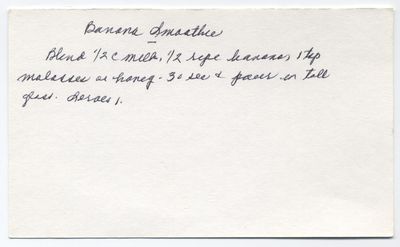 Banana Smoothie
Blend 1/2 c milk, 1/2 ripe bananas 1 tsp
molasses or honey - 30 sec & pour in tall
glass. Serves 1.